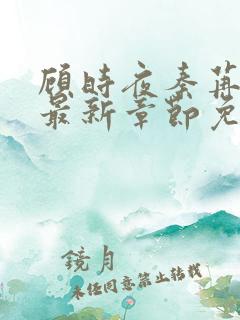 顾时夜秦苒
最新章节免
鏡月
未经同意禁止转载